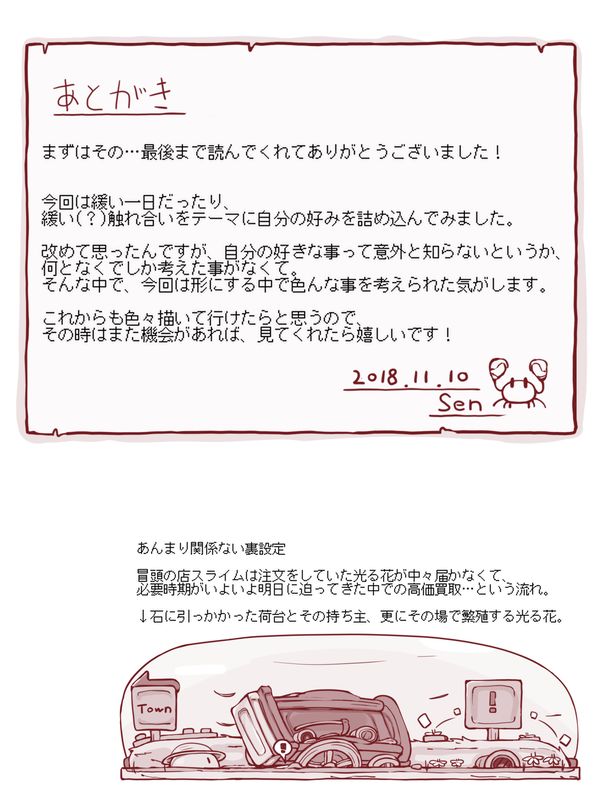 あとがき
まずはその…最後まで読んでくれてありがとうございました！
今回は緩い一日だったり、
緩い(？)触れ合いをテーマに自分の好みを詰め込んでみました。
改めて思ったんですが、自分の好きな事って意外と知らないというか、
何となくでしか考えた事がなくて。
そんな中で、今回は形にする中で色んな事を考えられた気がします。
これからも色々描いて行けたらと思うので、
その時はまた機会があれば、見てくれたら嬉しいです！
2018.11.10
Sen
あんまり関係ない裏設定
冒頭の店スライムは注文をしていた光る花が中々届かなくて、
必要時期がいよいよ明日に迫ってきた中での高価買取…という流れ。
↓石に引っかかった荷台とその持ち主、更にその場で繁殖する光る花。
Town
!
!!